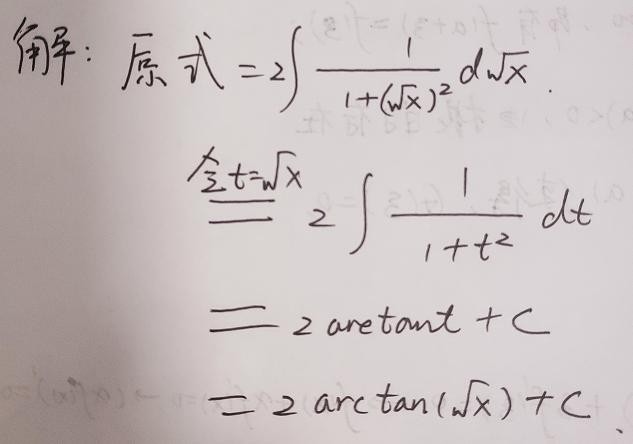 解：原式=2∫ 1/(1+(√x)²) d√x.
令t=√x = 2∫ 1/(1+t²) dt
= 2 arctant + C
= 2 arctan(√x) + C.